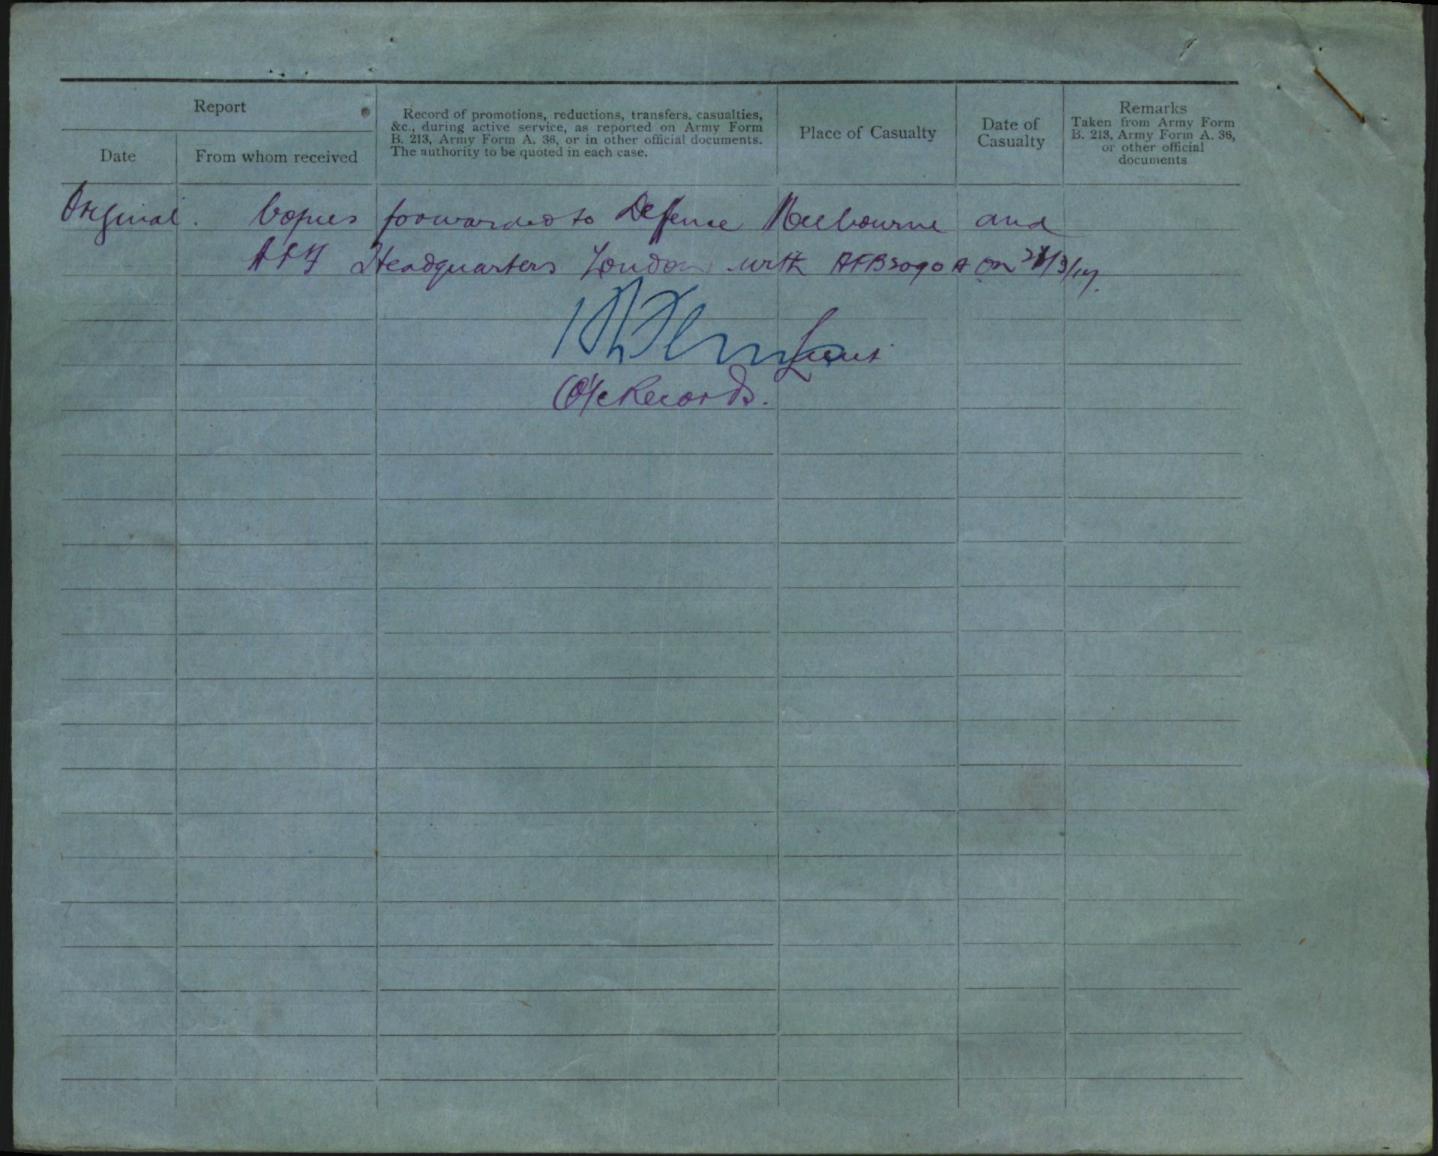 Report
Record of promotions, reductions, transfers, casualties,
&c., during active service, as reported on Army Form
B. 213, Army Form A. 36, or in other official documents.
The authority to be quoted in each case.
Place of Casualty
Date of
Casualty
Remarks
Taken from Army Form
B. 213, Army Form A. 36,
or other official
documents
Date
From whom received
Original. Copies forwarded to Defence Melbourne and
AIF Headquarters London with AFB2090A on /3/17.
Lieut
O/c Records.